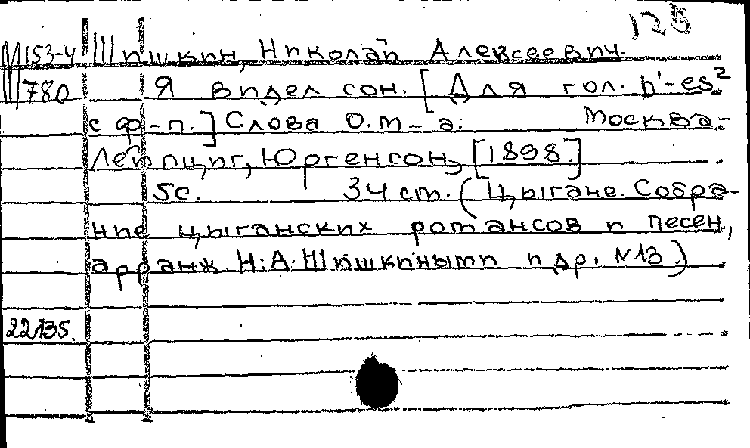 125
М 153-4 Шишкин, Николай Алексеевич.
780 Я видел сон. [Для гол. h'-es²
с ф-п.] Слова О.т-а. Москва-
Лейпциг, Юргенсон, [1898.]
5с. 34 cm. (Цыгане. Собра-
ние цыганских романсов и песен,
арранж. Н.А. Шишкиным и др. N13)
22135.